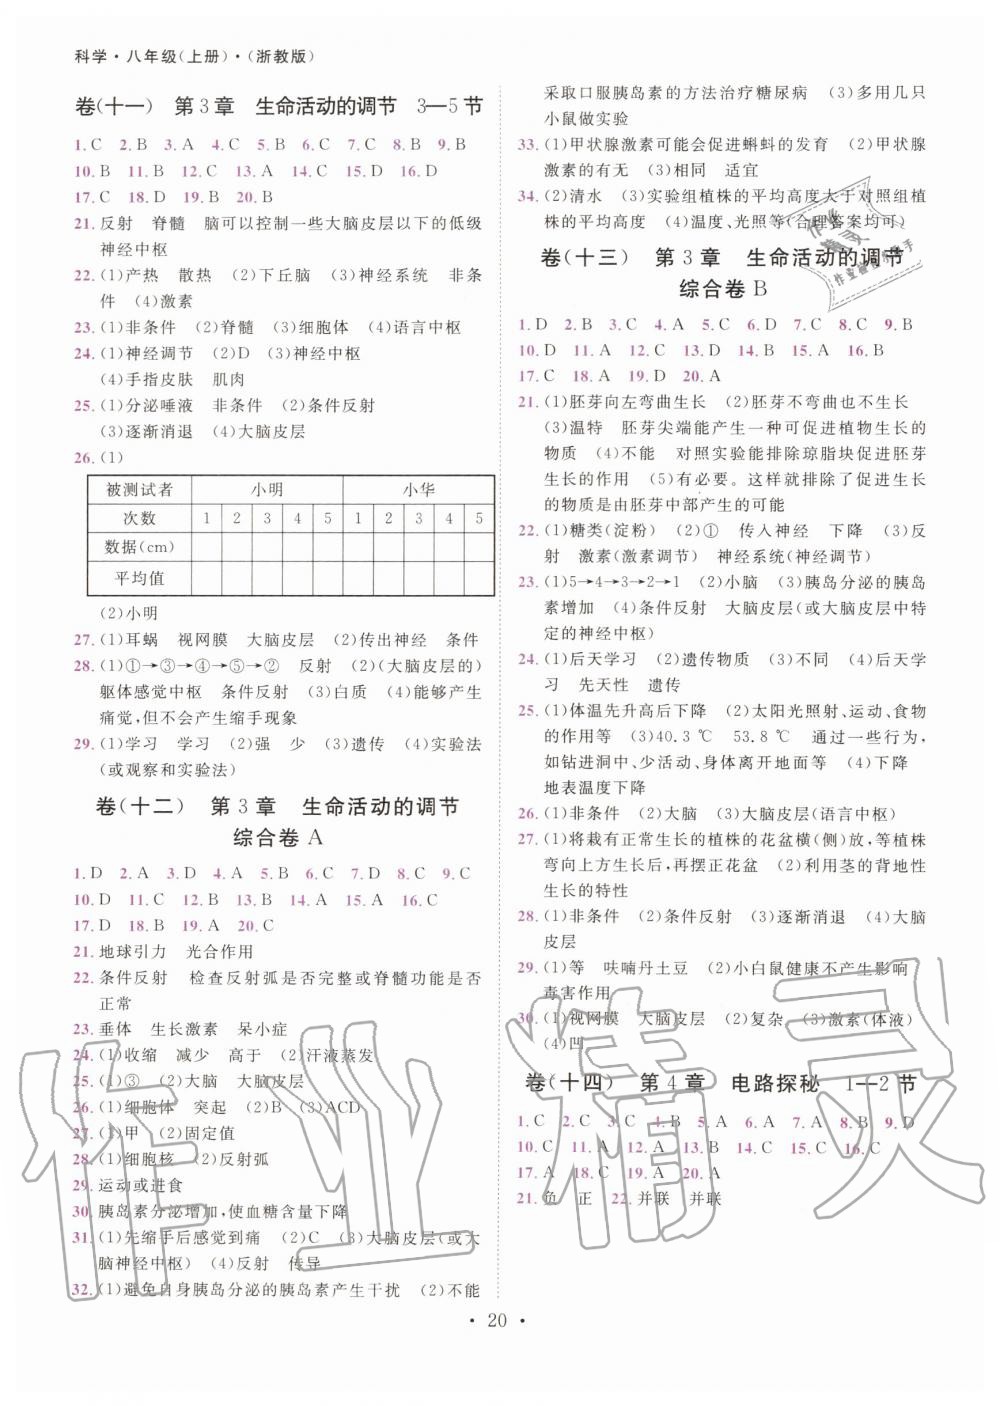 科学·八年级(上册)·(浙教版)
卷(十一) 第3章 生命活动的调节 3—5节
1. C 2. B 3. A 4. C 5. B 6. C 7. C 8. B 9. B
10. B 11. B 12. C 13. A 14. C 15. D 16. D
17. C 18. D 19. B 20. B
21. 反射 脊髓 脑可以控制一些大脑皮层以下的低级
神经中枢
22. (1)产热 散热 (2)下丘脑 (3)神经系统 非条
件 (4)激素
23. (1)非条件 (2)脊髓 (3)细胞体 (4)语言中枢
24. (1)神经调节 (2)D (3)神经中枢
(4)手指皮肤 肌肉
25. (1)分泌唾液 非条件 (2)条件反射
(3)逐渐消退 (4)大脑皮层
26. (1)
被测试者 小明 小华
次数 1 2 3 4 5 1 2 3 4 5
数据(cm)
平均值
(2)小明
27. (1)耳蜗 视网膜 大脑皮层 (2)传出神经 条件
28. (1)①→③→④→⑤→② 反射 (2)(大脑皮层的)
躯体感觉中枢 条件反射 (3)白质 (4)能够产生
痛觉,但不会产生缩手现象
29. (1)学习 学习 (2)强 少 (3)遗传 (4)实验法
(或观察和实验法)
卷(十二) 第3章 生命活动的调节
综合卷A
1. D 2. A 3. D 4. A 5. B 6. C 7. A 8. C 9. C
10. D 11. C 12. B 13. B 14. A 15. A 16. C
17. D 18. B 19. A 20. C
21. 地球引力 光合作用
22. 条件反射 检查反射弧是否完整或脊髓功能是否
正常
23. 垂体 生长激素 呆小症
24. (1)收缩 减少 高于 (2)汗液蒸发
25. (1)③ (2)大脑 大脑皮层
26. (1)细胞体 突起 (2)B (3)ACD
27. (1)甲 (2)固定值
28. (1)细胞核 (2)反射弧
29. 运动或进食
30. 胰岛素分泌增加,使血糖含量下降
31. (1)先缩手后感觉到痛 (2)C (3)大脑皮层(或大
脑神经中枢) (4)反射 传导
32. (1)避免自身胰岛分泌的胰岛素产生干扰 (2)不能
采取口服胰岛素的方法治疗糖尿病 (3)多用几只
小鼠做实验
33. (1)甲状腺激素可能会促进蝌蚪的发育 (2)甲状腺
激素的有无 (3)相同 适宜
34. (2)清水 (3)实验组植株的平均高度大于对照组植
株的平均高度 (4)温度、光照等(合理答案均可)
卷(十三) 第3章 生命活动的调节
综合卷B
1. D 2. B 3. C 4. A 5. C 6. D 7. C 8. C 9. B
10. D 11. A 12. C 13. D 14. B 15. A 16. B
17. C 18. A 19. D 20. A
21. (1)胚芽向左弯曲生长 (2)胚芽不弯曲也不生长
(3)温特 胚芽尖端能产生一种可促进植物生长的
物质 (4)不能 对照实验能排除琼脂块促进胚芽
生长的作用 (5)有必要。这样就排除了促进生长
的物质是由胚芽中部产生的可能
22. (1)糖类(淀粉) (2)① 传入神经 下降 (3)反
射 激素(激素调节) 神经系统(神经调节)
23. (1)5→4→3→2→1 (2)小脑 (3)胰岛分泌的胰岛
素增加 (4)条件反射 大脑皮层(或大脑皮层中特
定的神经中枢)
24. (1)后天学习 (2)遗传物质 (3)不同 (4)后天学
习 先天性 遗传
25. (1)体温先升高后下降 (2)太阳光照射、运动、食物
的作用等 (3)40.3℃ 53.8℃ 通过一些行为,
如钻进洞中、少活动、身体离开地面等 (4)下降
地表温度下降
26. (1)非条件 (2)大脑 (3)大脑皮层(语言中枢)
27. (1)将栽有正常生长的植株的花盆横(侧)放,等植株
弯向上方生长后,再摆正花盆 (2)利用茎的背地性
生长的特性
28. (1)非条件 (2)条件反射 (3)逐渐消退 (4)大脑
皮层
29. (1)等 呋喃丹土豆 (2)小白鼠健康不产生影响
毒害作用
30. (1)视网膜 大脑皮层 (2)复杂 (3)激素(体液)
(4)凹
卷(十四) 第4章 电路探秘 1—2节
1. C 2. C 3. C 4. B 5. A 6. A 7. A 8. B 9. D
10. C 11. A 12. A 13. B 14. C 15. C 16. C
17. A 18. C 19. A 20. A
21. 负 正 22. 并联 并联
· 20 ·
作业精灵